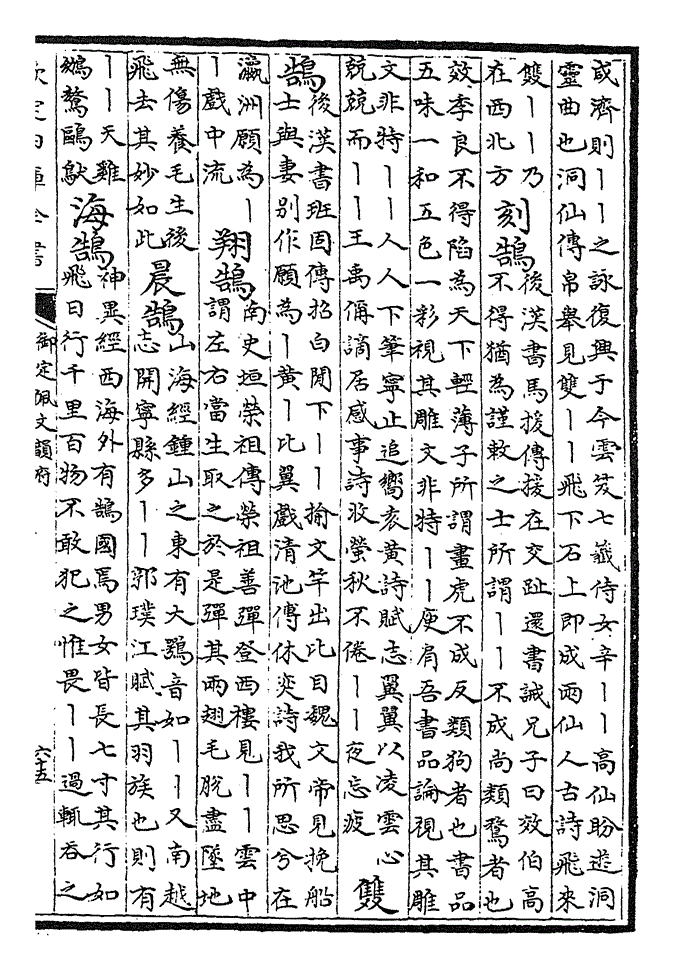 或濟則丨丨之詠復興于今雲笈七籖侍女辛丨丨高仙盼遊洞
靈曲也洞仙傳帛舉見雙丨丨飛下石上即成兩仙人古詩飛來
雙丨丨乃
在西北方
刻鵠
後漢書馬援傳援在交趾還書誡兄子曰效伯高
不得猶為謹敕之士所謂丨丨不成尚類鶩者也
效季良不得陷為天下輕薄子所謂畫虎不成反類狗者也書品
五味一和五色一彩視其雕文非特丨丨庾肩吾書品論視其雕
文非特丨丨人人下筆寧止追響袁黃詩賦志翼翼以凌雲心
兢兢而丨丨王禹偁謫居感事詩收螢秋不倦丨丨夜忘疲
雙
鵠
後漢書班固傳招白閒下丨丨揄文竿出比目魏文帝見挽船
士與妻別作願為丨黃丨比翼戲清池傅休奕詩我所思兮在
瀛洲願為丨
丨戲中流
翔鵠
南史垣榮祖傳榮祖善彈登西樓見丨丨雲中
謂左右當生取之於是彈其兩翅毛脫盡墜地
無傷養毛生後
飛去其妙如此
晨鵠
山海經鍾山之東有大鶚音如丨丨又南越
志開寧縣多丨丨郭璞江賦其羽族也則有
丨丨天雞
鴢鷔鷗䲦
海鵠
神異經西海外有鵠國焉男女皆長七寸其行如
飛日行千里百物不敢犯之惟畏丨丨過輒吞之
欽定四庫全書
御定佩文韻府
六十五